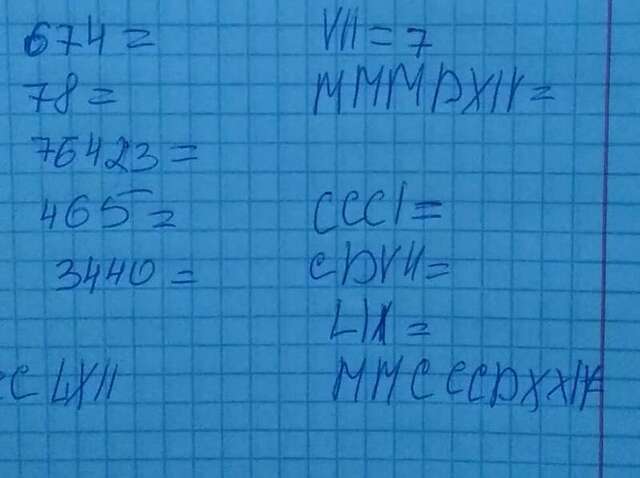 674 =
78 =
76423 =
465 =
3440 =
CLXII
VII = 7
MMMDXIV =
CCCI =
CDVII =
LIX =
MMCCCDXXIX